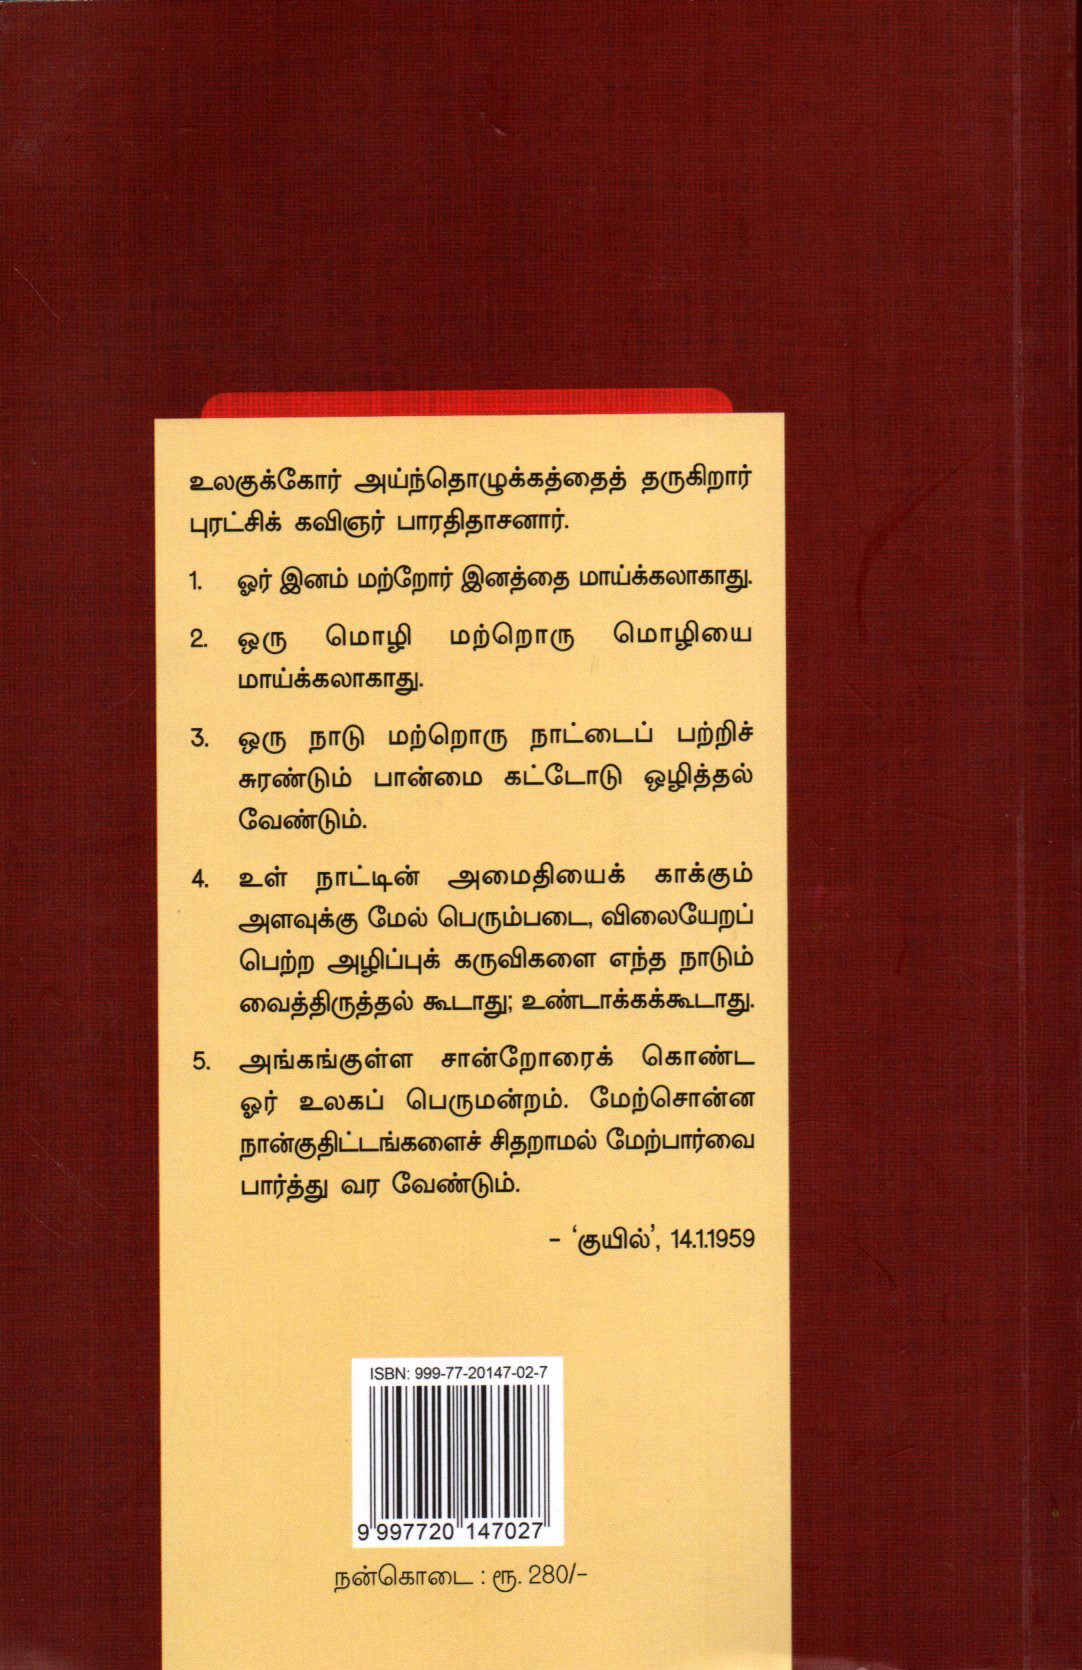 உலகுக்கோர் அய்ந்தொழுக்கத்தைத் தருகிறார்
புரட்சிக் கவிஞர் பாரதிதாசனார்.
1. ஓர் இனம் மற்றோர் இனத்தை மாய்க்கலாகாது.
2. ஒரு மொழி மற்றொரு மொழியை
மாய்க்கலாகாது.
3. ஒரு நாடு மற்றொரு நாட்டைப் பற்றிச்
சுரண்டும் பான்மை கட்டோடு ஒழித்தல்
வேண்டும்.
4. உள் நாட்டின் அமைதியைக் காக்கும்
அளவுக்கு மேல் பெரும்படை, விலையேறப்
பெற்ற அழிப்புக் கருவிகளை எந்த நாடும்
வைத்திருத்தல் கூடாது; உண்டாக்கக்கூடாது.
5. அங்கங்குள்ள சான்றோரைக் கொண்ட
ஓர் உலகப் பெருமன்றம். மேற்சொன்ன
நான்குதிட்டங்களைச் சிதறாமல் மேற்பார்வை
பார்த்து வர வேண்டும்.
– ‘குயில்’, 14.1.1959
ISBN: 999-77-20147-02-7
9 997720 147027
நன்கொடை : ரூ. 280/-